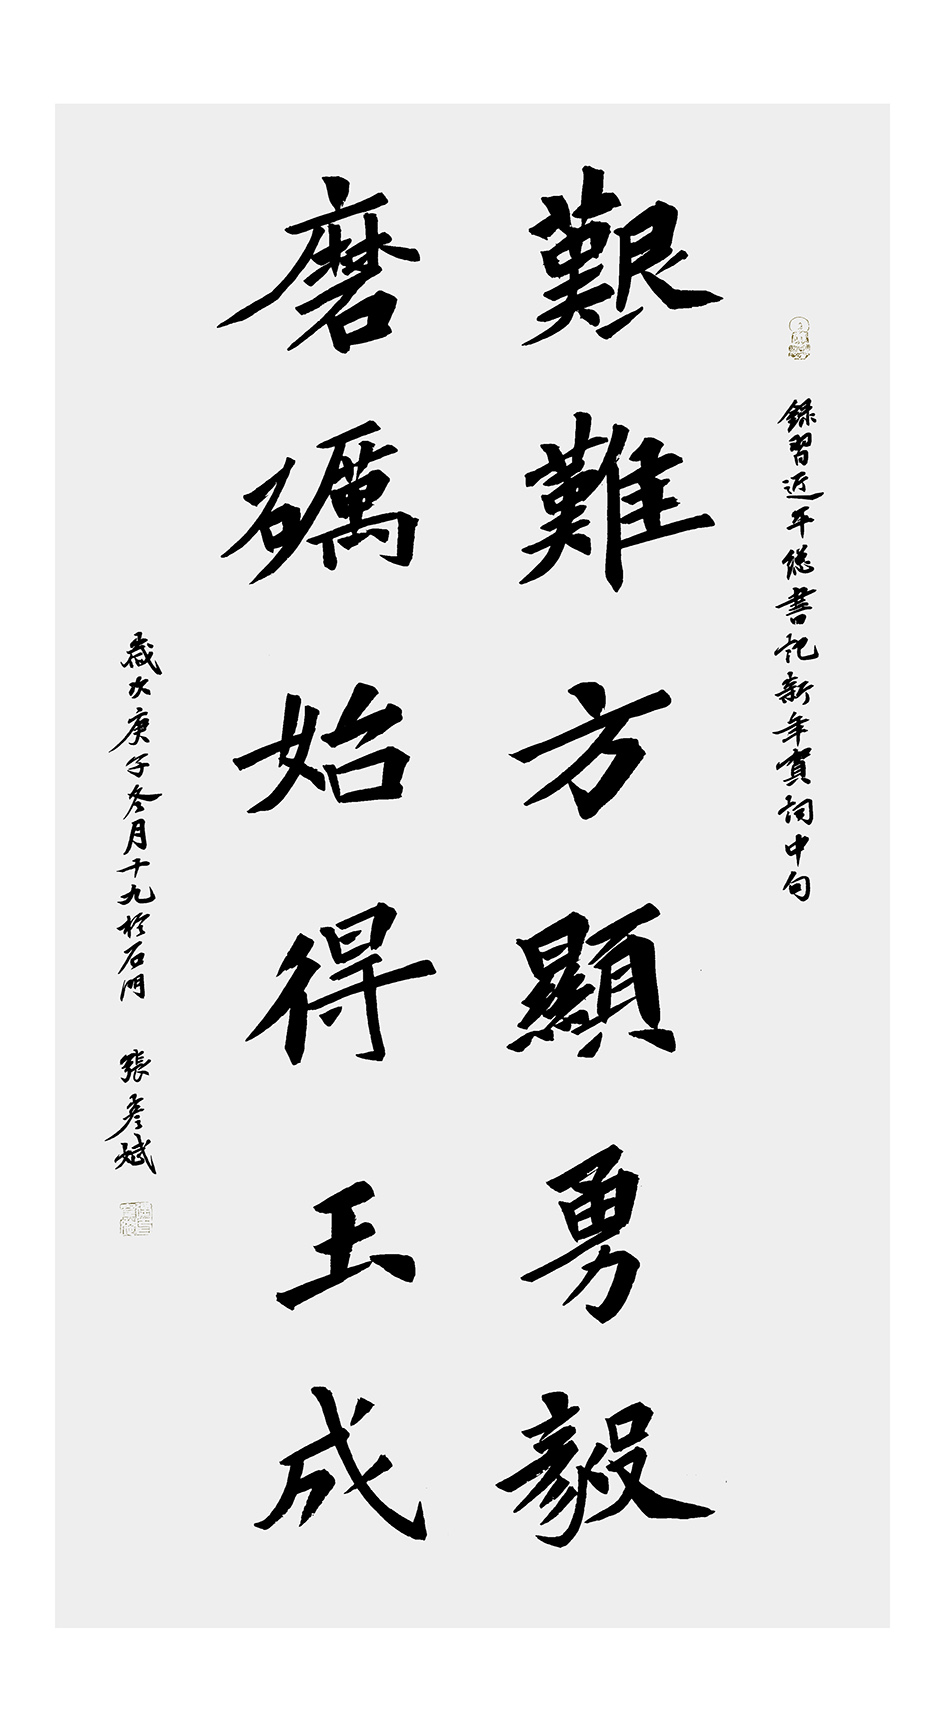 錄習近平總書記新年賀詞中句
艱難方顯勇毅
磨礪始得玉成
歲次庚子冬月十九於石門 張彥斌